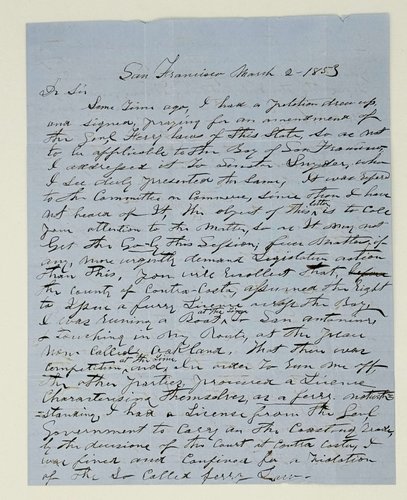 San Francisco March 2-1853
Dr Sir
Some time ago, I had a Petition drew up,
and signed, praying for an amendment of
the Genl Ferry laws of this State, so as not
to be applicable to the Bay of San Francisco,
I addressed it to Senator Snyder, who
I see duly presented the Same, It was referd
to the Committee on Commerce, Since then I have
not heard of it the object of this letter is to Call
your attention to the Matter, so as it may not
Get the Go-by this Session, few Matters, if
any more urgently demand Legislative action
than this, You will Recollect that,
the County of Contra-Costa, assumed the Right
to a ferry License across the Bay,
I was Runing a Boat at the time to San Antonio,
& touching on my Route, at the place
Now Called Oakland. That there was
Competition, at the time and, in order to Run me off
the other Parties procured a License
Characterising themselves, as a ferry notwith=
=standing I had a License from the Genl
Government to Carry on the Coasting trade,
by the decisions of the Court at Contra Costa, I
was fined and Confined for a Violation
of the So Called ferry Law-